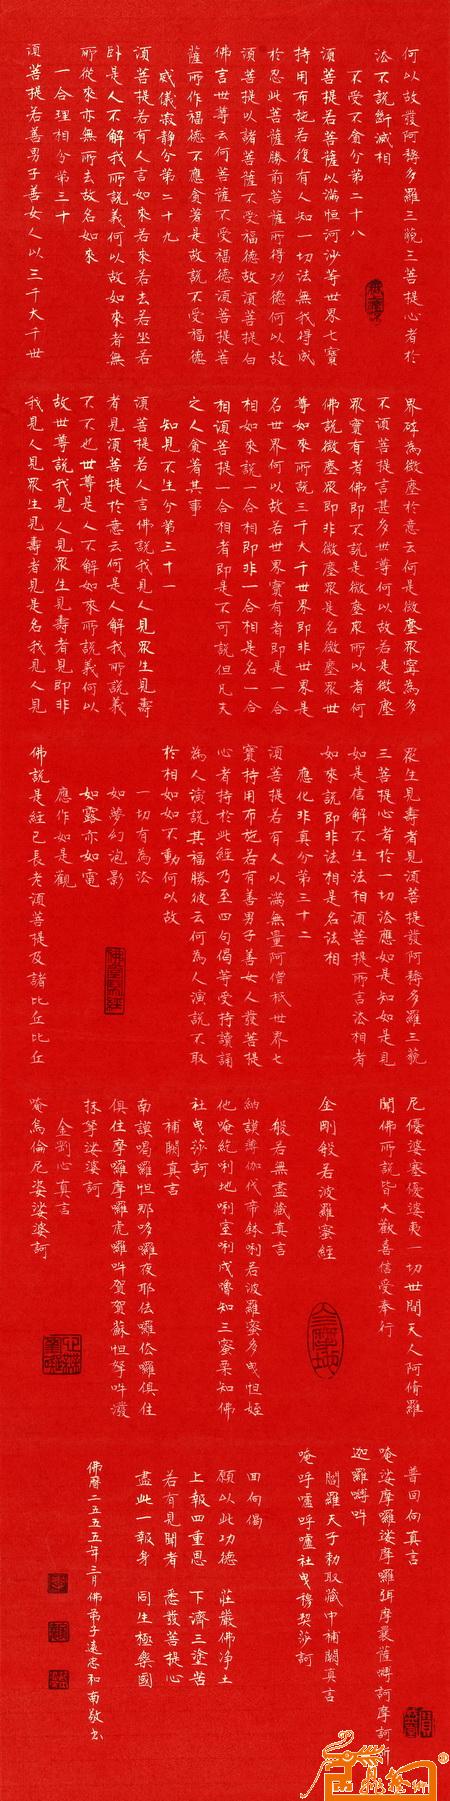 何以故發阿耨多羅三藐三菩提心者於
法不說斷滅相
不受不貪分第二十八
須菩提若菩薩以滿恒河沙等世界七寶
持用布施若復有人知一切法無我得成
於忍此菩薩勝前菩薩所得功德何以故
須菩提以諸菩薩不受福德故須菩提白
佛言世尊云何菩薩不受福德須菩提菩
薩所作福德不應貪著是故說不受福德
威儀寂靜分第二十九
須菩提若有人言如來若來若去若坐若
臥是人不解我所說義何以故如來者無
所從來亦無所去故名如來
一合理相分第三十
須菩提若善男子善女人以三千大千世
界碎為微塵於意云何是微塵眾寧為多
不須菩提言甚多世尊何以故若是微塵
眾實有者佛即不說是微塵眾所以者何
佛說微塵眾即非微塵眾是名微塵眾世
尊如來所說三千大千世界即非世界是
名世界何以故若世界實有者即是一合
相如來說一合相即非一合相是名一合
相須菩提一合相者即是不可說但凡夫
之人貪著其事
知見不生分第三十一
須菩提若人言佛說我見人見眾生見壽
者見須菩提於意云何是人解我所說義
不不也世尊是人不解如來所說義何以
故世尊說我見人見眾生見壽者見即非
我見人見眾生見壽者見是名我見人見
眾生見壽者見須菩提發阿耨多羅三藐
三菩提心者於一切法應如是知如是見
如是信解不生法相須菩提所言法相者
如來說即非法相是名法相
應化非真分第三十二
須菩提若有人以滿無量阿僧祇世界七
寶持用布施若有善男子善女人發菩提
心者持於此經乃至四句偈等受持讀誦
為人演說其福勝彼云何為人演說不取
於相如如不動何以故
一切有為法
如夢幻泡影
如露亦如電
應作如是觀
佛說是經已長老須菩提及諸比丘比丘
尼優婆塞優婆夷一切世間天人阿脩羅
聞佛所說皆大歡喜信受奉行
金剛般若波羅蜜經
般若無盡藏真言
納謨薄伽伐帝鉢唎若波羅蜜多曳怛姪
他唵紇唎地唎室唎戍嚕知三蜜栗知佛
社曳莎訶
補闕真言
南謨喝囉怛那哆囉夜耶佉囉佉囉俱住
俱住摩囉摩囉虎囉吽賀賀蘇怛拏吽潑
抹拏娑婆訶
金剛心真言
唵烏倫尼娑娑婆訶
普回向真言
唵娑摩囉娑摩囉弭摩曩薩嚩訶摩訶斫
迦羅嚩吽
閻羅天子勅取藏中補闕真言
唵呼嚧呼嚧社曳穆契莎訶
回向偈
願以此功德 莊嚴佛净土
上報四重恩 下濟三塗苦
若有見聞者 悉發菩提心
盡此一報身 同生極樂國
佛曆二五五五年三月佛弟子遠忠和南敬書